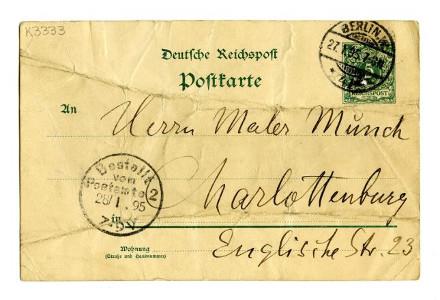 K3333
BERLIN.W.
27.1.95.7-8N.
Deutsche Reichspost
Postkarte
REICHSPOST
An
Herrn Maler Munch
Bestellt
vom
Postamte 2
28/1.95
Charlottenburg
in
Wohnung
(Straße und Hausnummer)
Englische Str. 23